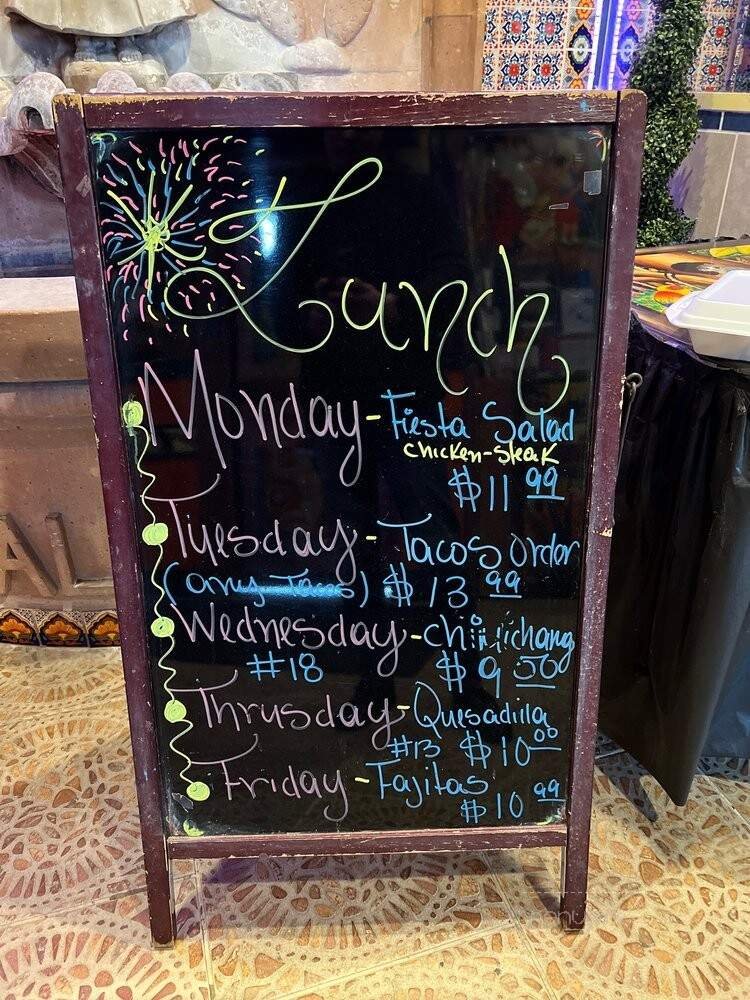 Lunch
Monday - Fiesta Salad
chicken-Steak
$11 99
Tuesday - Tacos Order
(any Tacos) $13 99
Wednesday - chimichang
#18 $9 50
Thrusday - Quesadilla
#13 $10 00
Friday - Fajitas
$10 99
AL